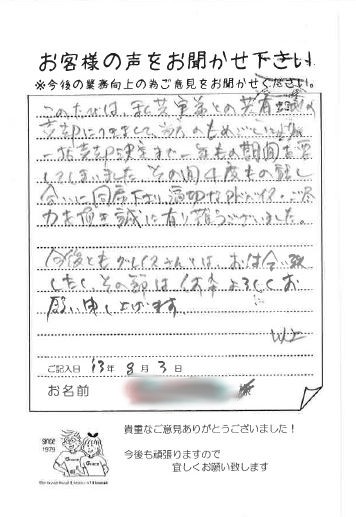 お客様の声をお聞かせ下さい
※今後の業務向上の為ご意見をお聞かせください。
このたびは、私共兄弟との共有
売却につきまして、
一括売却決定まで一年もの期間を要
してしまいました。その間4度もの話し
合いに同席下さり適切なアドバイス・ご尽
力を頂き誠に有り難うございました。
今後ともグレイスさんとは、お付き合い致
したく、その節は、何卒よろしくお
願い申し上げます。
以上
ご記入日 '13年 8月 3日
お名前 様
since
1979
Grace
貴重なご意見ありがとうございました！
今後も頑張りますので
宜しくお願い致します